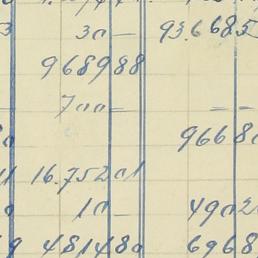 3 30 — 93.6685
968988
700 — — —
0 96680
11 16.75201
0 10 — 4902
9 481480 6968